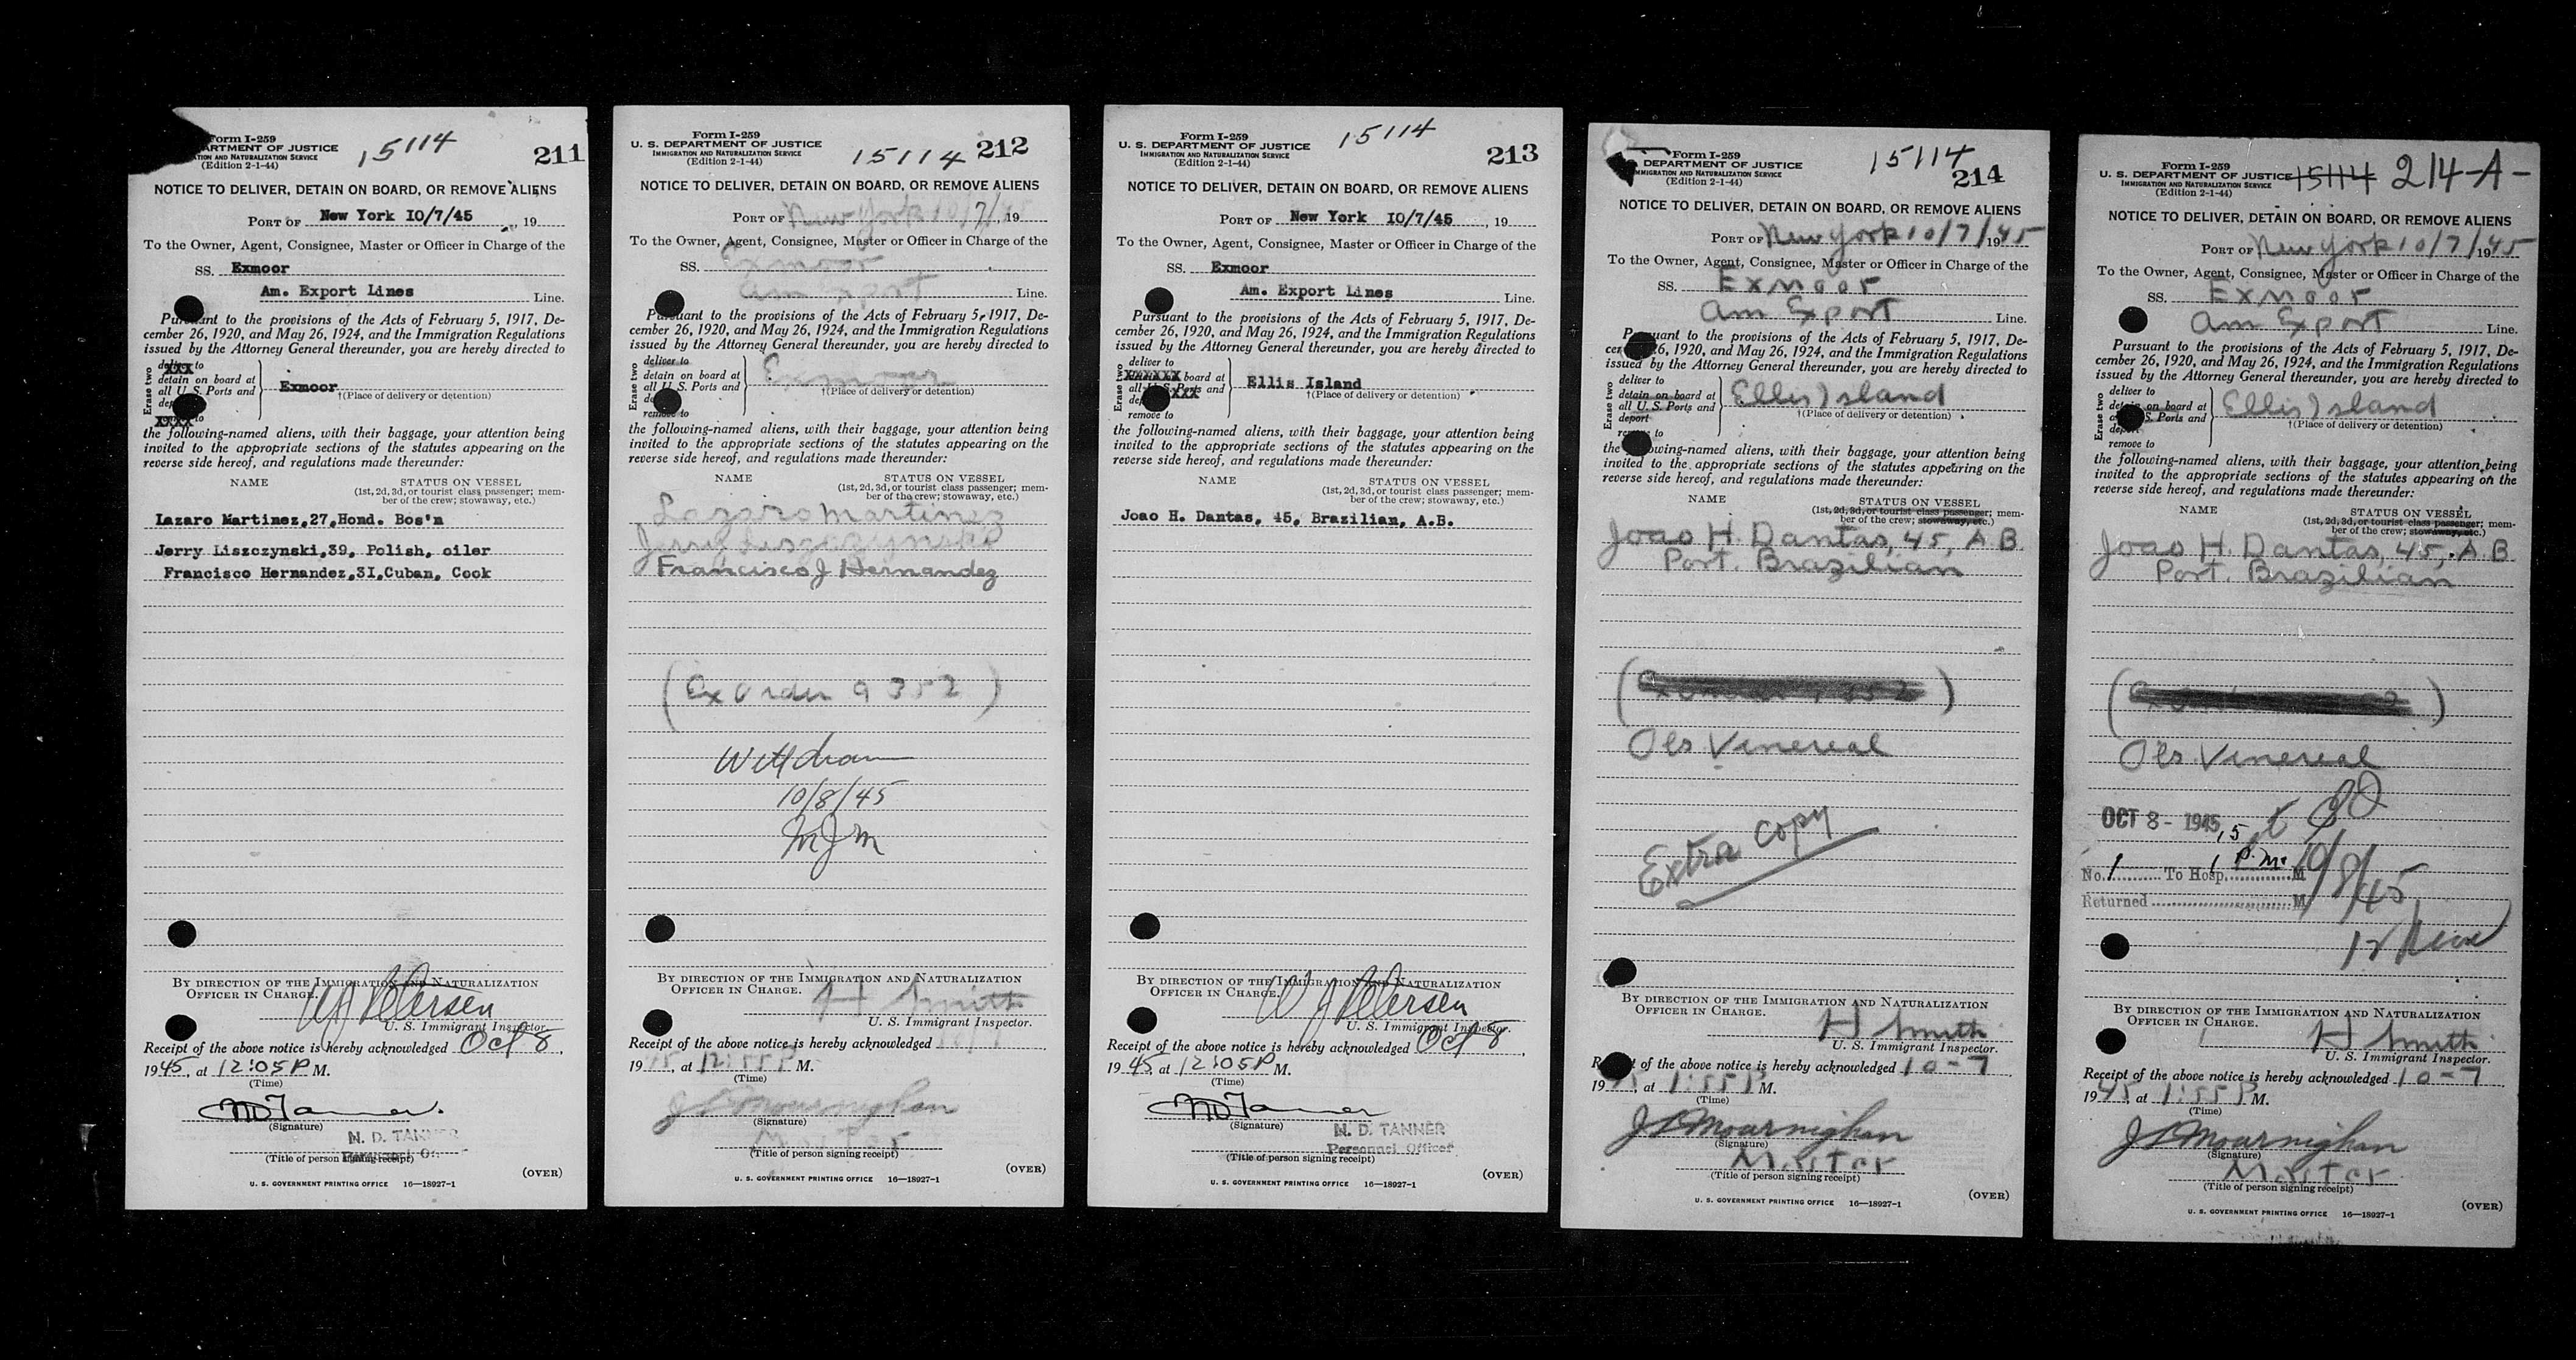 Form I-259
ARTMENT OF JUSTICE
TION AND NATURALIZATION SERVICE
(Edition 2-1-44)
15114
211
NOTICE TO DELIVER, DETAIN ON BOARD, OR REMOVE ALIENS
PORT OF New York 10/7/45, 19
To the Owner, Agent, Consignee, Master or Officer in Charge of the
SS. Exmoor
Am. Export Lines Line.
Pursuant to the provisions of the Acts of February 5, 1917, De-
cember 26, 1920, and May 26, 1924, and the Immigration Regulations
issued by the Attorney General thereunder, you are hereby directed to
Erase two
deliver to
detain on board at
all U. S. Ports and
dep
xxxx to
Exmoor
†(Place of delivery or detention)
the following-named aliens, with their baggage, your attention being
invited to the appropriate sections of the statutes appearing on the
reverse side hereof, and regulations made thereunder:
NAME STATUS ON VESSEL
(1st, 2d, 3d, or tourist class passenger; mem-
ber of the crew; stowaway, etc.)
Lazaro Martinez,27,Hond. Bos'n
Jerry Liszczynski,39, Polish, oiler
Francisco Hernandez,31,Cuban, Cook
BY DIRECTION OF THE IMMIGRATION AND NATURALIZATION
OFFICER IN CHARGE.
W J Petersen
U. S. Immigrant Inspector.
Receipt of the above notice is hereby acknowledged Oct 8,
1945, at 12:05 P M.
(Time)
N D Tanner
(Signature)
N. D. TANNER
(Title of person signing receipt)
(OVER)
U. S. GOVERNMENT PRINTING OFFICE 16—18927-1
Form I-259
U. S. DEPARTMENT OF JUSTICE
IMMIGRATION AND NATURALIZATION SERVICE
(Edition 2-1-44)
15114
212
NOTICE TO DELIVER, DETAIN ON BOARD, OR REMOVE ALIENS
PORT OF New York 10/7/, 19
To the Owner, Agent, Consignee, Master or Officer in Charge of the
SS. Exmoor
Am Export Line.
Pursuant to the provisions of the Acts of February 5, 1917, De-
cember 26, 1920, and May 26, 1924, and the Immigration Regulations
issued by the Attorney General thereunder, you are hereby directed to
Erase two
deliver to
detain on board at
all U. S. Ports and
de
remove to
Exmoor
†(Place of delivery or detention)
the following-named aliens, with their baggage, your attention being
invited to the appropriate sections of the statutes appearing on the
reverse side hereof, and regulations made thereunder:
NAME STATUS ON VESSEL
(1st, 2d, 3d, or tourist class passenger; mem-
ber of the crew; stowaway, etc.)
Lazaro Martinez
Jerry Liszczynski
Francisco J Hernandez
(Ex Order 9352)
Withdrawn
10/8/45
MJM
BY DIRECTION OF THE IMMIGRATION AND NATURALIZATION
OFFICER IN CHARGE.
H Smith
U. S. Immigrant Inspector.
Receipt of the above notice is hereby acknowledged
19 45, at 12:55 P M.
(Time)
J L Mournighan
(Signature)
Master
(Title of person signing receipt)
(OVER)
U. S. GOVERNMENT PRINTING OFFICE 16—18927-1
Form I-259
U. S. DEPARTMENT OF JUSTICE
IMMIGRATION AND NATURALIZATION SERVICE
(Edition 2-1-44)
15114
213
NOTICE TO DELIVER, DETAIN ON BOARD, OR REMOVE ALIENS
PORT OF New York 10/7/45, 19
To the Owner, Agent, Consignee, Master or Officer in Charge of the
SS. Exmoor
Am. Export Lines Line.
Pursuant to the provisions of the Acts of February 5, 1917, De-
cember 26, 1920, and May 26, 1924, and the Immigration Regulations
issued by the Attorney General thereunder, you are hereby directed to
Erase two
deliver to
xxxxxxx board at
all U. S. Ports and
dep xxx
remove to
Ellis Island
†(Place of delivery or detention)
the following-named aliens, with their baggage, your attention being
invited to the appropriate sections of the statutes appearing on the
reverse side hereof, and regulations made thereunder:
NAME STATUS ON VESSEL
(1st, 2d, 3d, or tourist class passenger; mem-
ber of the crew; stowaway, etc.)
Joao H. Dantas, 45, Brazilian, A.B.
BY DIRECTION OF THE IMMIGRATION AND NATURALIZATION
OFFICER IN CHARGE.
W J Petersen
U. S. Immigrant Inspector.
Receipt of the above notice is hereby acknowledged Oct 8,
1945, at 12:05 P M.
(Time)
N D Tanner
(Signature)
N. D. TANNER
Personnel Officer
(Title of person signing receipt)
(OVER)
U. S. GOVERNMENT PRINTING OFFICE 16—18927-1
Form I-259
DEPARTMENT OF JUSTICE
MMIGRATION AND NATURALIZATION SERVICE
(Edition 2-1-44)
15114
214
NOTICE TO DELIVER, DETAIN ON BOARD, OR REMOVE ALIENS
PORT OF New York 10/7/1945
To the Owner, Agent, Consignee, Master or Officer in Charge of the
SS. Exmoor
Am Export Line.
Pursuant to the provisions of the Acts of February 5, 1917, De-
cember 26, 1920, and May 26, 1924, and the Immigration Regulations
issued by the Attorney General thereunder, you are hereby directed to
Erase two
deliver to
detain on board at
all U. S. Ports and
deport
remove to
Ellis Island
†(Place of delivery or detention)
the following-named aliens, with their baggage, your attention being
invited to the appropriate sections of the statutes appearing on the
reverse side hereof, and regulations made thereunder:
NAME STATUS ON VESSEL
(1st, 2d, 3d, or tourist class passenger; mem-
ber of the crew; stowaway, etc.)
Joao H. Dantas, 45, A B
Port. Brazilian
Obs Venereal
Extra copy
BY DIRECTION OF THE IMMIGRATION AND NATURALIZATION
OFFICER IN CHARGE.
H Smith
U. S. Immigrant Inspector.
Receipt of the above notice is hereby acknowledged 10-7
1945, at 1:55 P M.
(Time)
J L Mournighan
(Signature)
Master
(Title of person signing receipt)
(OVER)
U. S. GOVERNMENT PRINTING OFFICE 16—18927-1
Form I-259
U. S. DEPARTMENT OF JUSTICE
IMMIGRATION AND NATURALIZATION SERVICE
(Edition 2-1-44)
15114 214-A-
NOTICE TO DELIVER, DETAIN ON BOARD, OR REMOVE ALIENS
PORT OF New York 10/7/1945
To the Owner, Agent, Consignee, Master or Officer in Charge of the
SS. Exmoor
Am Export Line.
Pursuant to the provisions of the Acts of February 5, 1917, De-
cember 26, 1920, and May 26, 1924, and the Immigration Regulations
issued by the Attorney General thereunder, you are hereby directed to
Erase two
deliver to
detain on board at
all U. S. Ports and
deport
remove to
Ellis Island
†(Place of delivery or detention)
the following-named aliens, with their baggage, your attention being
invited to the appropriate sections of the statutes appearing on the
reverse side hereof, and regulations made thereunder:
NAME STATUS ON VESSEL
(1st, 2d, 3d, or tourist class passenger; mem-
ber of the crew; stowaway, etc.)
Joao H. Dantas, 45, A B
Port. Brazilian
Obs. Venereal
OCT 8 - 1945
No. 1 To Hosp. 1 P.m. M
10/8/45
Returned M
BY DIRECTION OF THE IMMIGRATION AND NATURALIZATION
OFFICER IN CHARGE.
H Smith
U. S. Immigrant Inspector.
Receipt of the above notice is hereby acknowledged 10-7
1945, at 1:55 P M.
(Time)
J L Mournighan
(Signature)
Master
(Title of person signing receipt)
(OVER)
U. S. GOVERNMENT PRINTING OFFICE 16—18927-1